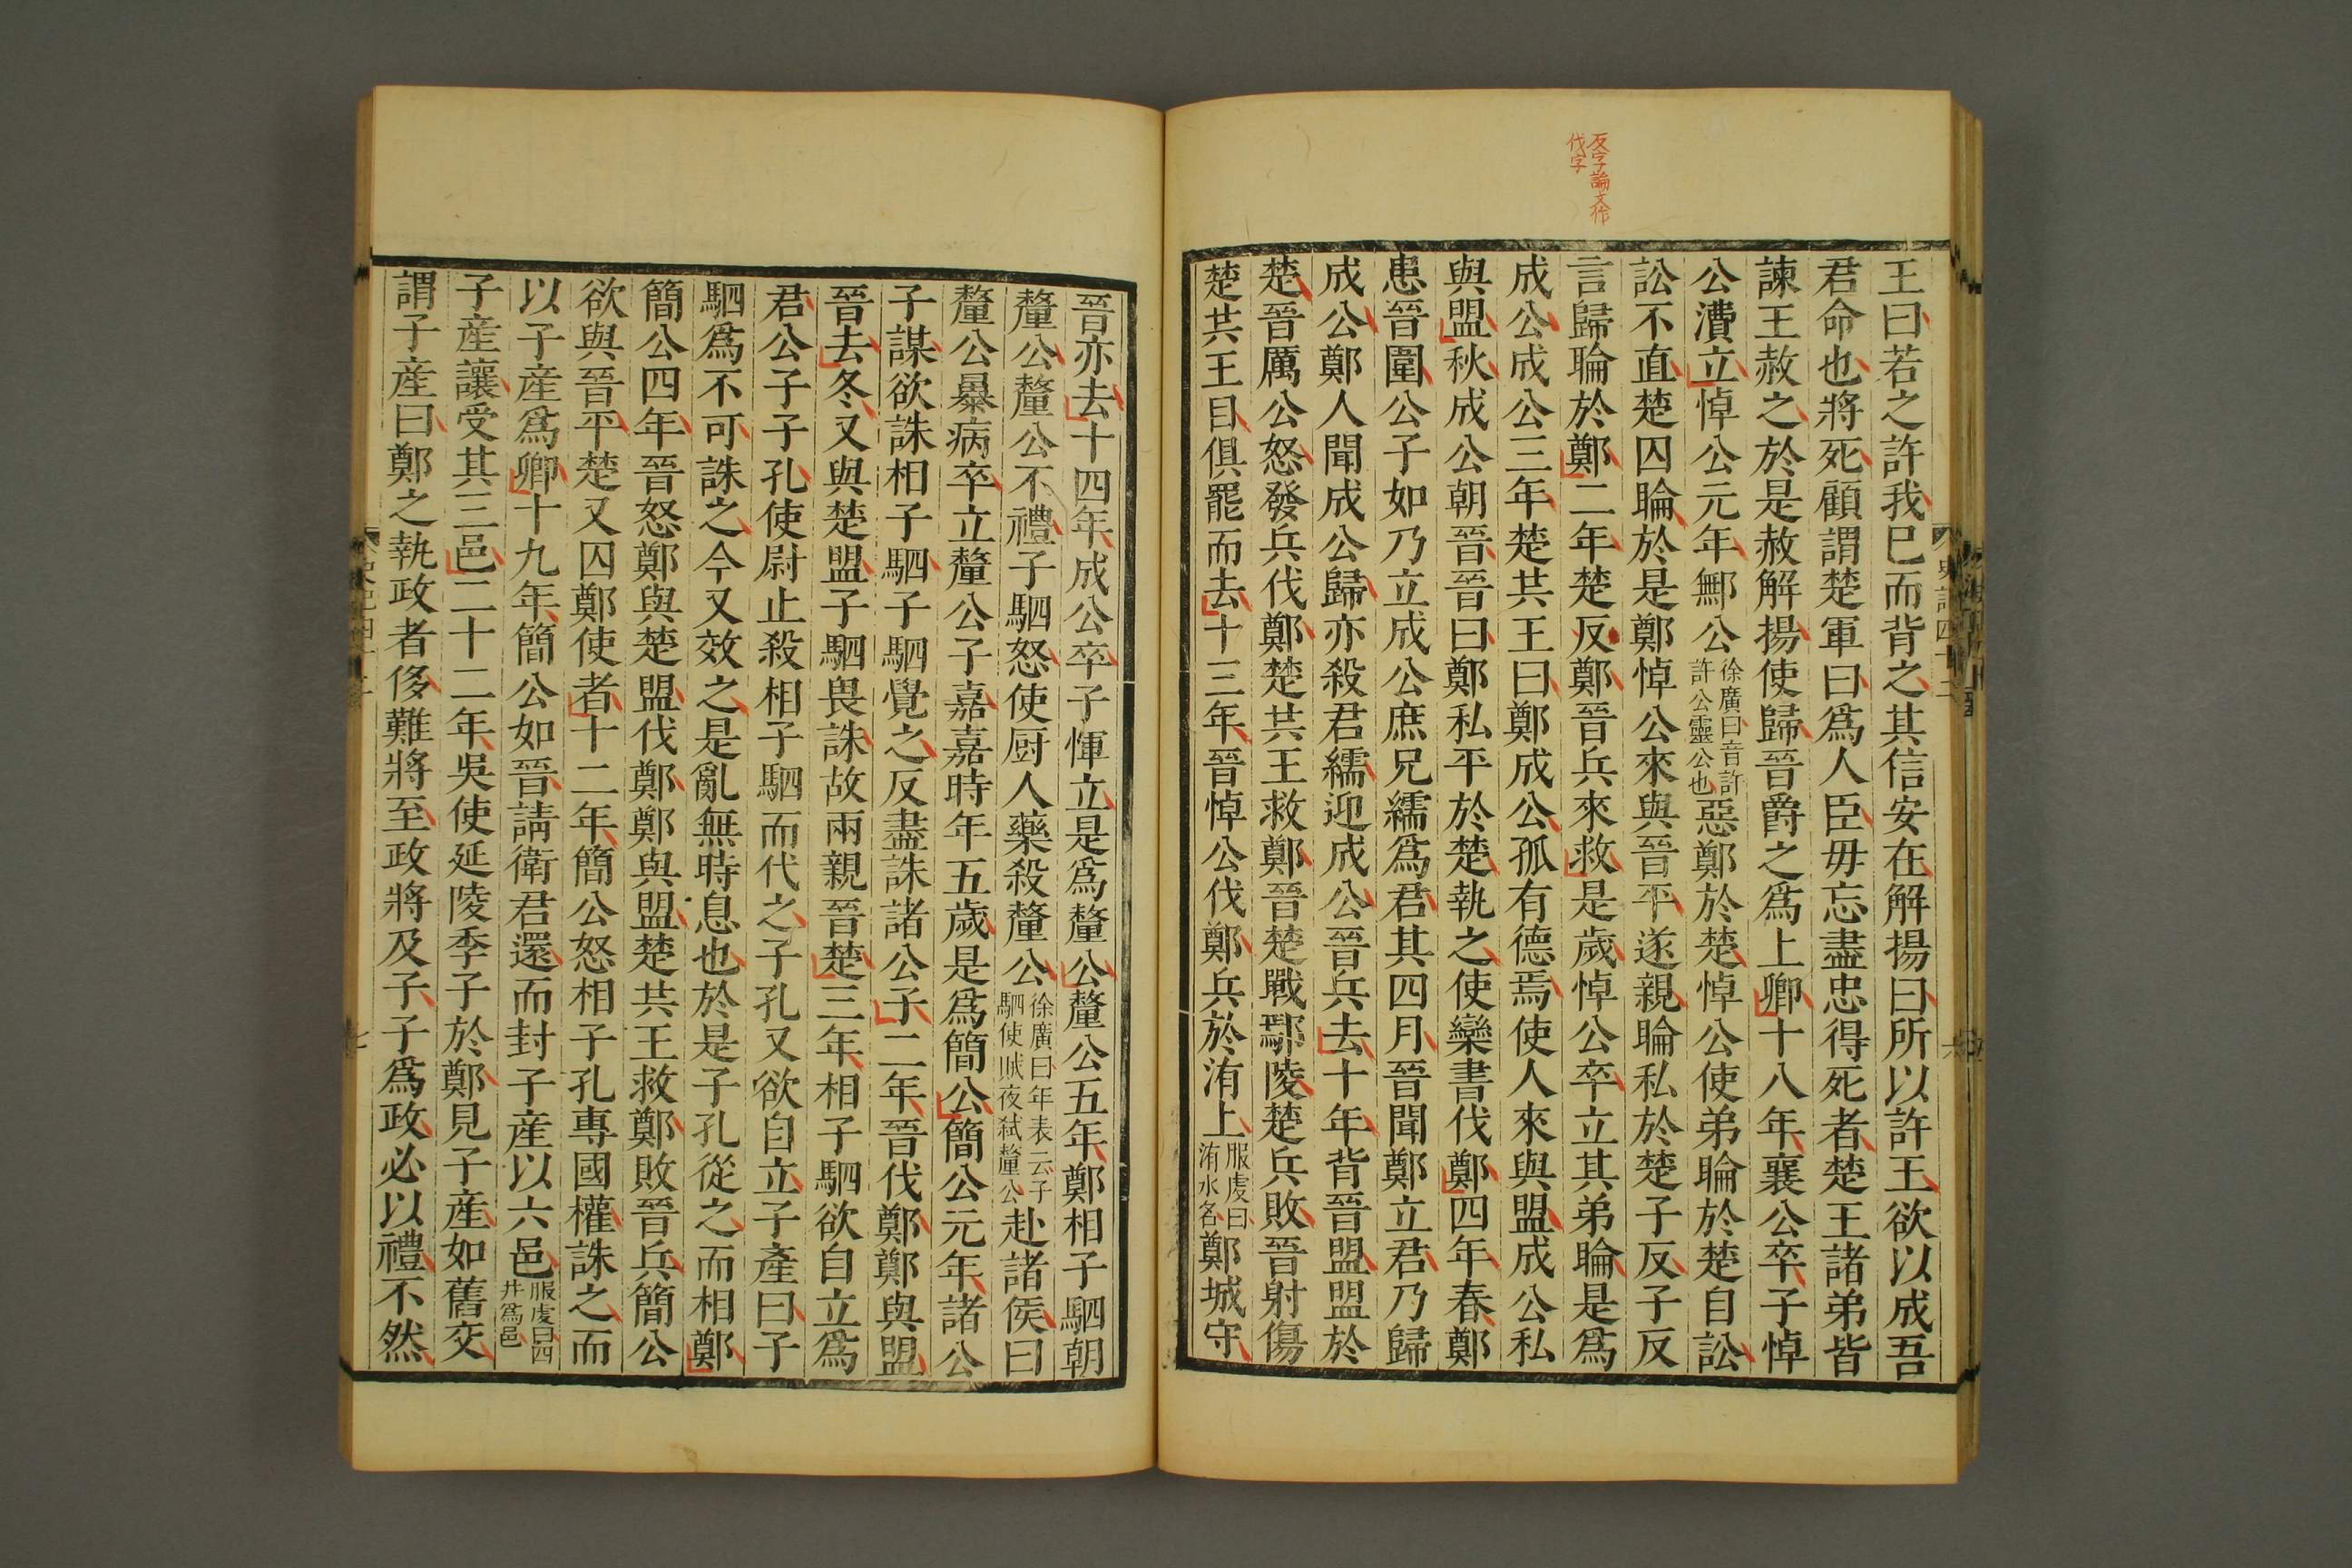 反字論文作
伐字
王曰若之許我已而背之其信安在解揚曰所以許王欲以成吾
君命也將死顧謂楚軍曰爲人臣毋忘盡忠得死者楚王諸弟皆
諫王赦之於是赦解揚使歸晉爵之爲上卿十八年襄公卒子悼
公灒立悼公元年鄦公徐廣曰音許許公靈公也惡鄭於楚悼公使弟睔於楚自訟
訟不直楚囚睔於是鄭悼公來與晉平遂親睔私於楚子反子反
言歸睔於鄭二年楚反鄭晉兵來救是歲悼公卒立其弟睔是爲
成公成公三年楚共王曰鄭成公孤有德焉使人來與盟成公私
與盟秋成公朝晉晉曰鄭私平於楚執之使欒書伐鄭四年春鄭
患晉圍公子如乃立成公庶兄繻爲君其四月晉聞鄭立君乃歸
成公鄭人聞成公歸亦殺君繻迎成公晉兵去十年背晉盟盟於
楚晉厲公怒發兵伐鄭楚共王救鄭晉楚戰鄢陵楚兵敗晉射傷
楚共王目俱罷而去十三年晉悼公伐鄭兵於洧上服虔曰洧水名鄭城守
晉亦去十四年成公卒子惲立是爲釐公釐公五年鄭相子駟朝
釐公釐公不禮子駟怒使厨人藥殺釐公徐廣曰年表云子駟使賊夜弒釐公赴諸侯曰
釐公暴病卒立釐公子嘉嘉時年五歲是爲簡公簡公元年諸公
子謀欲誅相子駟子駟覺之反盡誅諸公子二年晉伐鄭鄭與盟
晉去冬又與楚盟子駟畏誅故兩親晉楚三年相子駟欲自立爲
君公子子孔使尉止殺相子駟而代之子孔又欲自立子產曰子
駟爲不可誅之今又效之是亂無時息也於是子孔從之而相鄭
簡公四年晉怒鄭與楚盟伐鄭鄭與盟楚共王救鄭敗晉兵簡公
欲與晉平楚又囚鄭使者十二年簡公怒相子孔專國權誅之而
以子產爲卿十九年簡公如晉請衛君還而封子產以六邑服虔曰四井爲邑
子產讓受其三邑二十二年吳使延陵季子於鄭見子產如舊交
謂子產曰鄭之執政者侈難將至政將及子子爲政必以禮不然